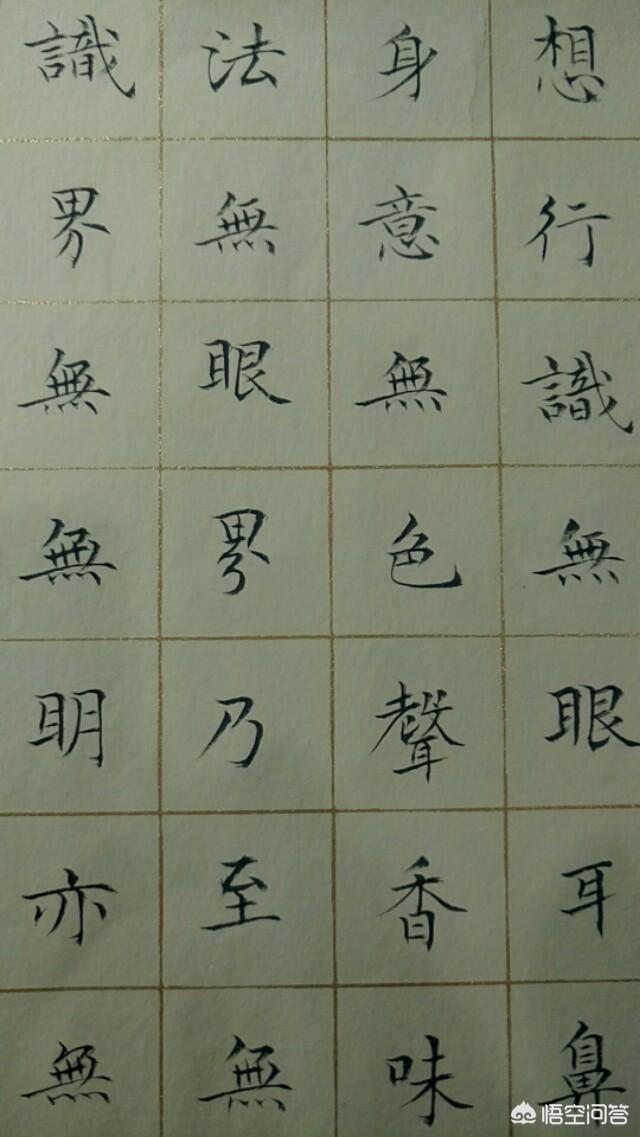 想行識無眼耳鼻
身意無色聲香味
法無眼界乃至無
識界無無明亦無
悟空问答